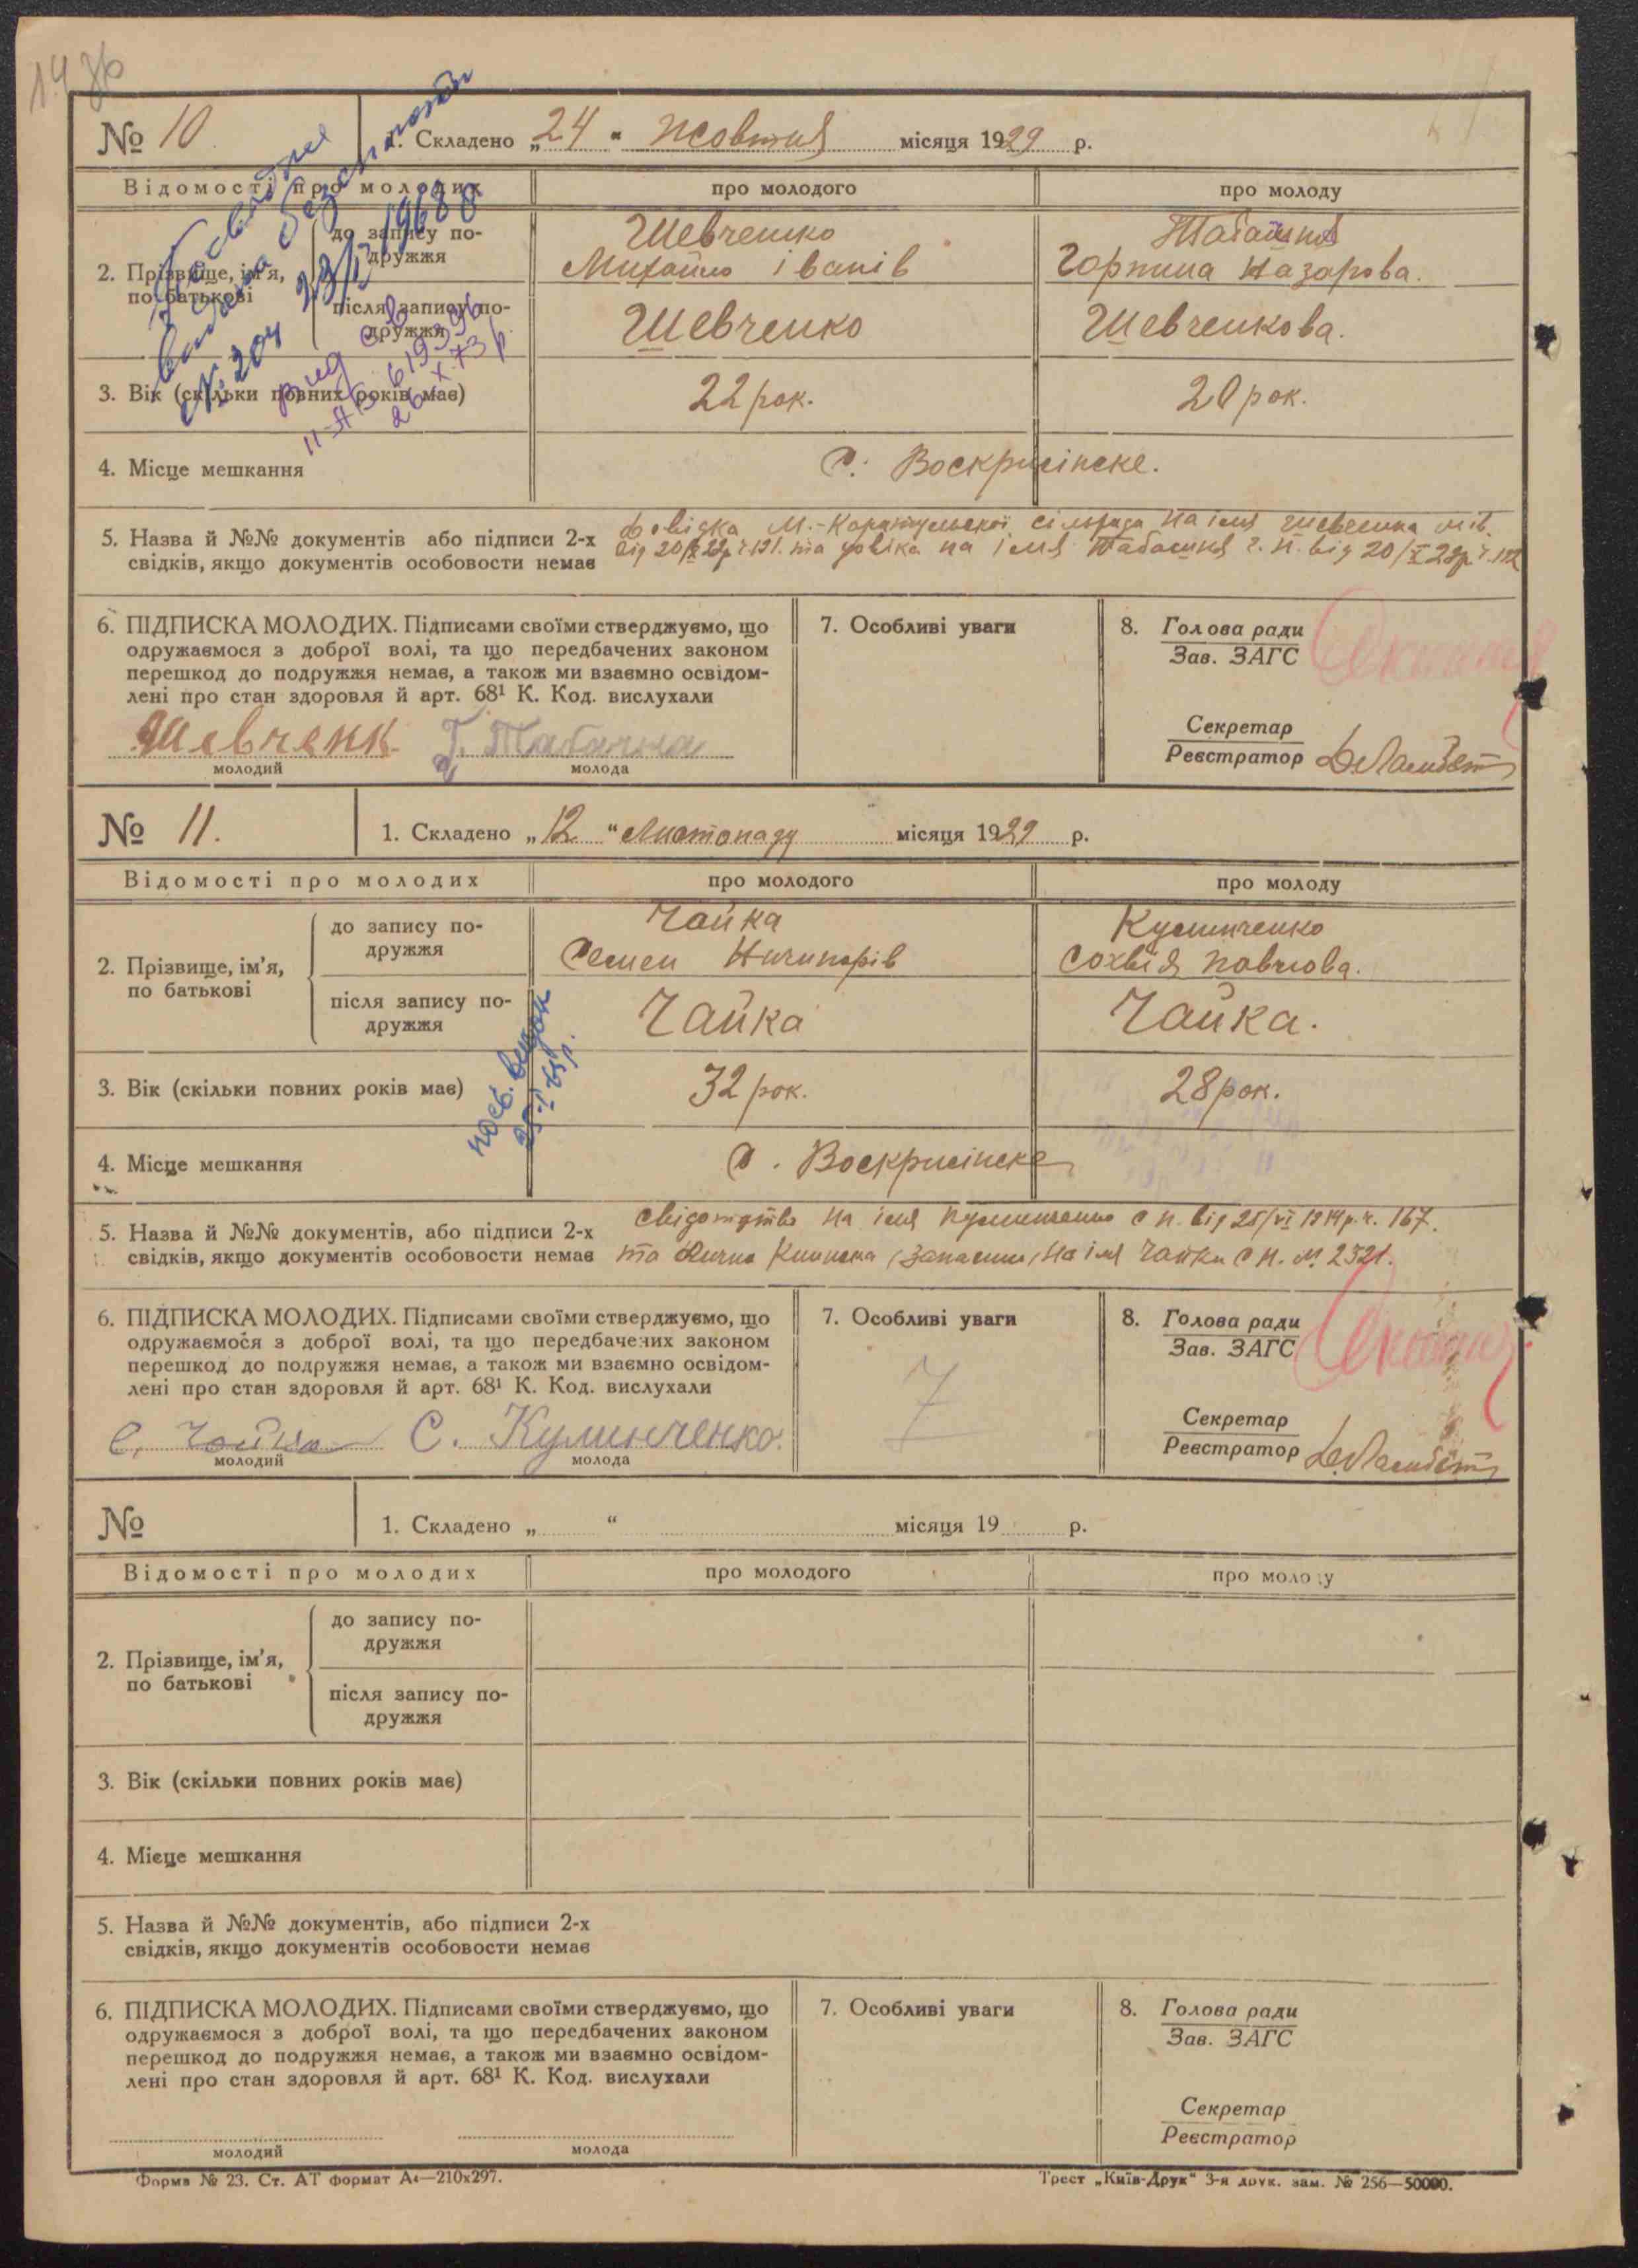 14 зв
№ 10 1. Складено „24“ жовтня місяця 1929 р.
Відомості про молодих про молодого про молоду
2. Прізвище, ім'я, по батькові
до запису подружжя
Шевченко
Михайло Іванів
Горпина Назарова.
після запису подружжя
Шевченко
Шевченкова.
3. Вік (скільки повних років має) 22 рок. 20 рок.
4. Місце мешкання С. Воскрисінске.
5. Назва й №№ документів або підписи 2-х
свідків, якщо документів особовости немає
6. ПІДПИСКА МОЛОДИХ. Підписами своїми стверджуємо, що
одружаємося з доброї волі, та що передбачених законом
перешкод до подружжя немає, а також ми взаємно освідом-
лені про стан здоровля й арт. 68¹ К. Код. вислухали
Шевченк
молодий молода
7. Особливі уваги
8. Голова ради
Зав. ЗАГС
Секретар
Реєстратор
№ 204 1968 р
26 X.73 р.
№ 11. 1. Складено „12“ Листопаду місяця 1929 р.
Відомості про молодих про молодого про молоду
2. Прізвище, ім'я,
по батькові
до запису по-
дружжя
Чайка
Семен Ничипорів
Кулинченко
Сохвія Павлова.
після запису по-
дружжя
Чайка
Чайка.
3. Вік (скільки повних років має) 32 рок. 28 рок.
4. Місце мешкання С. Воскрисінске
5. Назва й №№ документів, або підписи 2-х
свідків, якщо документів особовости немає
6. ПІДПИСКА МОЛОДИХ. Підписами своїми стверджуємо, що
одружаємося з доброї волі, та що передбачених законом
перешкод до подружжя немає, а також ми взаємно освідом-
лені про стан здоровля й арт. 68¹ К. Код. вислухали
С. Чайка С. Кулинченко.
молодий молода
7. Особливі уваги
7
8. Голова ради
Зав. ЗАГС
Секретар
Реєстратор
№ 1. Складено „ “ місяця 19 р.
Відомості про молодих про молодого про молоду
2. Прізвище, ім'я,
по батькові
до запису по-
дружжя
після запису по-
дружжя
3. Вік (скільки повних років має)
4. Місце мешкання
5. Назва й №№ документів, або підписи 2-х
свідків, якщо документів особовости немає
6. ПІДПИСКА МОЛОДИХ. Підписами своїми стверджуємо, що
одружаємося з доброї волі, та що передбачених законом
перешкод до подружжя немає, а також ми взаємно освідом-
лені про стан здоровля й арт. 68¹ К. Код. вислухали
молодий молода
7. Особливі уваги
8. Голова ради
Зав. ЗАГС
Секретар
Реєстратор
Форма № 23. Ст. АТ формат А4—210х297.
Трест „Київ-Друк“ 3-я друк. зам. № 256—50000.